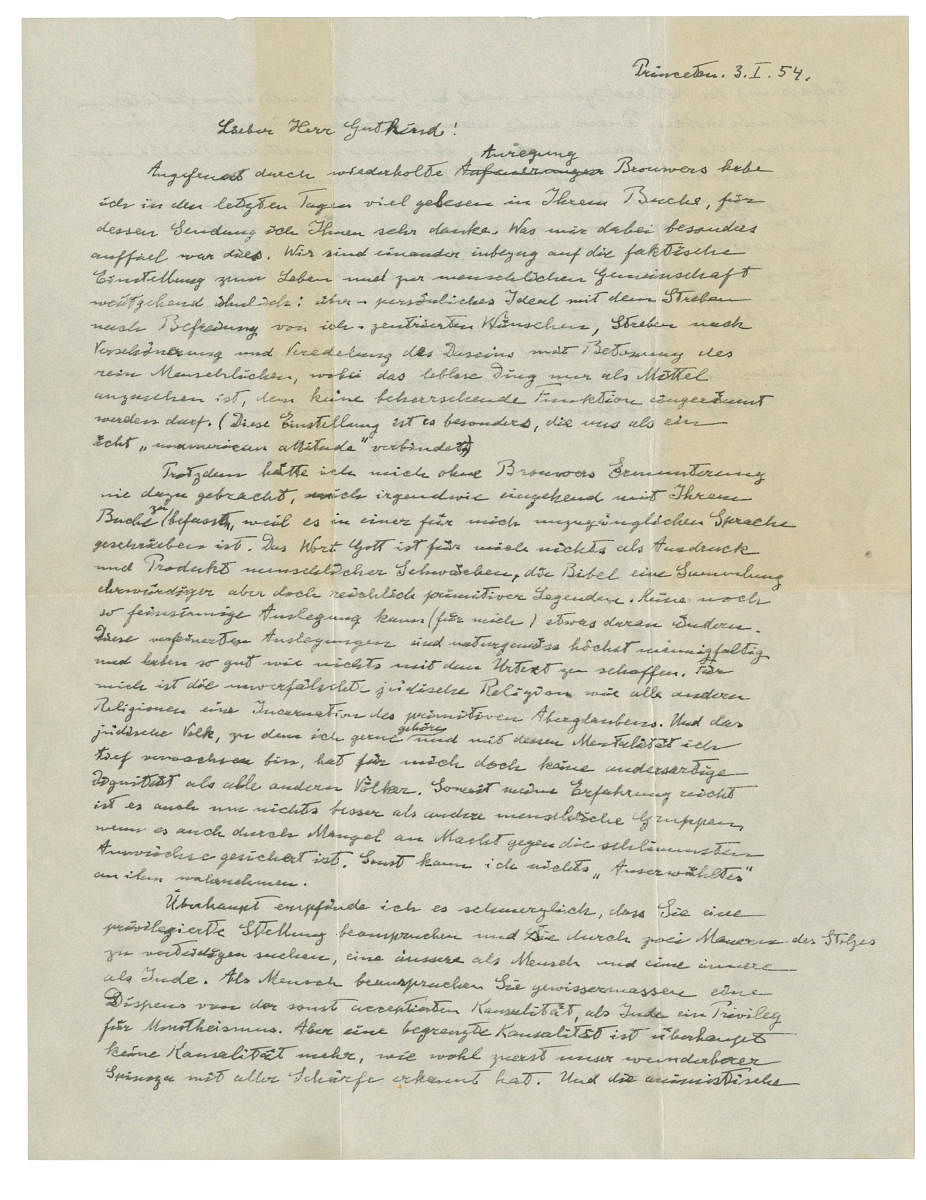 Princeton. 3. I. 54.
Lieber Herr Gutkind!
Anregung
Angefeuert durch wiederholte Brouwers habe
ich in den letzten Tagen viel gelesen in Ihrem Buche, für
dessen Sendung ich Ihnen sehr danke. Was mir dabei besonders
auffiel war dies. Wir sind einander inbezug auf die faktische
Einstellung zum Leben und zur menschlichen Gemeinschaft
weitgehend ähnlich: über-persönliches Ideal mit dem Streben
nach Befreiung von ich-zentrierten Wünschen, Streben nach
Verschönerung und Veredelung des Daseins mit Betonung des
rein Menschlichen, wobei das leblose Ding nur als Mittel
anzusehen ist, dem keine beherrschende Funktion eingeräumt
werden darf. (Diese Einstellung ist es besonders, die uns als ein
echt „unamerican attitude" verbindet)
Trotzdem hätte ich mich ohne Brouwers Ermunterung
nie dazu gebracht, mich irgendwie eingehend mit Ihrem
Buche zu befassen, weil es in einer für mich unzugänglichen Sprache
geschrieben ist. Das Wort Gott ist für mich nichts als Ausdruck
und Produkt menschlicher Schwächen, die Bibel eine Sammlung
ehrwürdiger aber doch reichlich primitiver Legenden. Keine noch
so feinsinnige Auslegung kann (für mich) etwas daran ändern.
Diese verfeinerten Auslegungen sind naturgemäss höchst mannigfaltig
und haben so gut wie nichts mit dem Urtext zu schaffen. Für
mich ist die unverfälschte jüdische Religion wie alle andern
Religionen eine Incarnation des primitiven Aberglaubens. Und das
jüdische Volk, zu dem ich gerne gehöre und mit dessen Mentalität ich
tief verwachsen bin, hat für mich doch keine andersartige
Dignität als alle andern Völker. Soweit meine Erfahrung reicht
ist es auch um nichts besser als andere menschliche Gruppen,
wenn es auch durch Mangel an Macht gegen die schlimmsten
Auswüchse gesichert ist. Sonst kann ich nichts „Auserwähltes"
an ihm wahrnehmen.
Überhaupt empfinde ich es schmerzlich, dass Sie eine
privilegierte Stellung beanspruchen und Sie durch zwei Mauern des Stolzes
zu verteidigen suchen, eine äussere als Mensch und eine innere
als Jude. Als Mensch beanspruchen Sie gewissermassen eine
Dispens von der sonst acceptierten Kausalität, als Jude ein Privileg
für Monotheismus. Aber eine begrenzte Kausalität ist überhaupt
keine Kausalität mehr, wie wohl zuerst unser wunderbarer
Spinoza mit aller Schärfe erkannt hat. Und die animistische